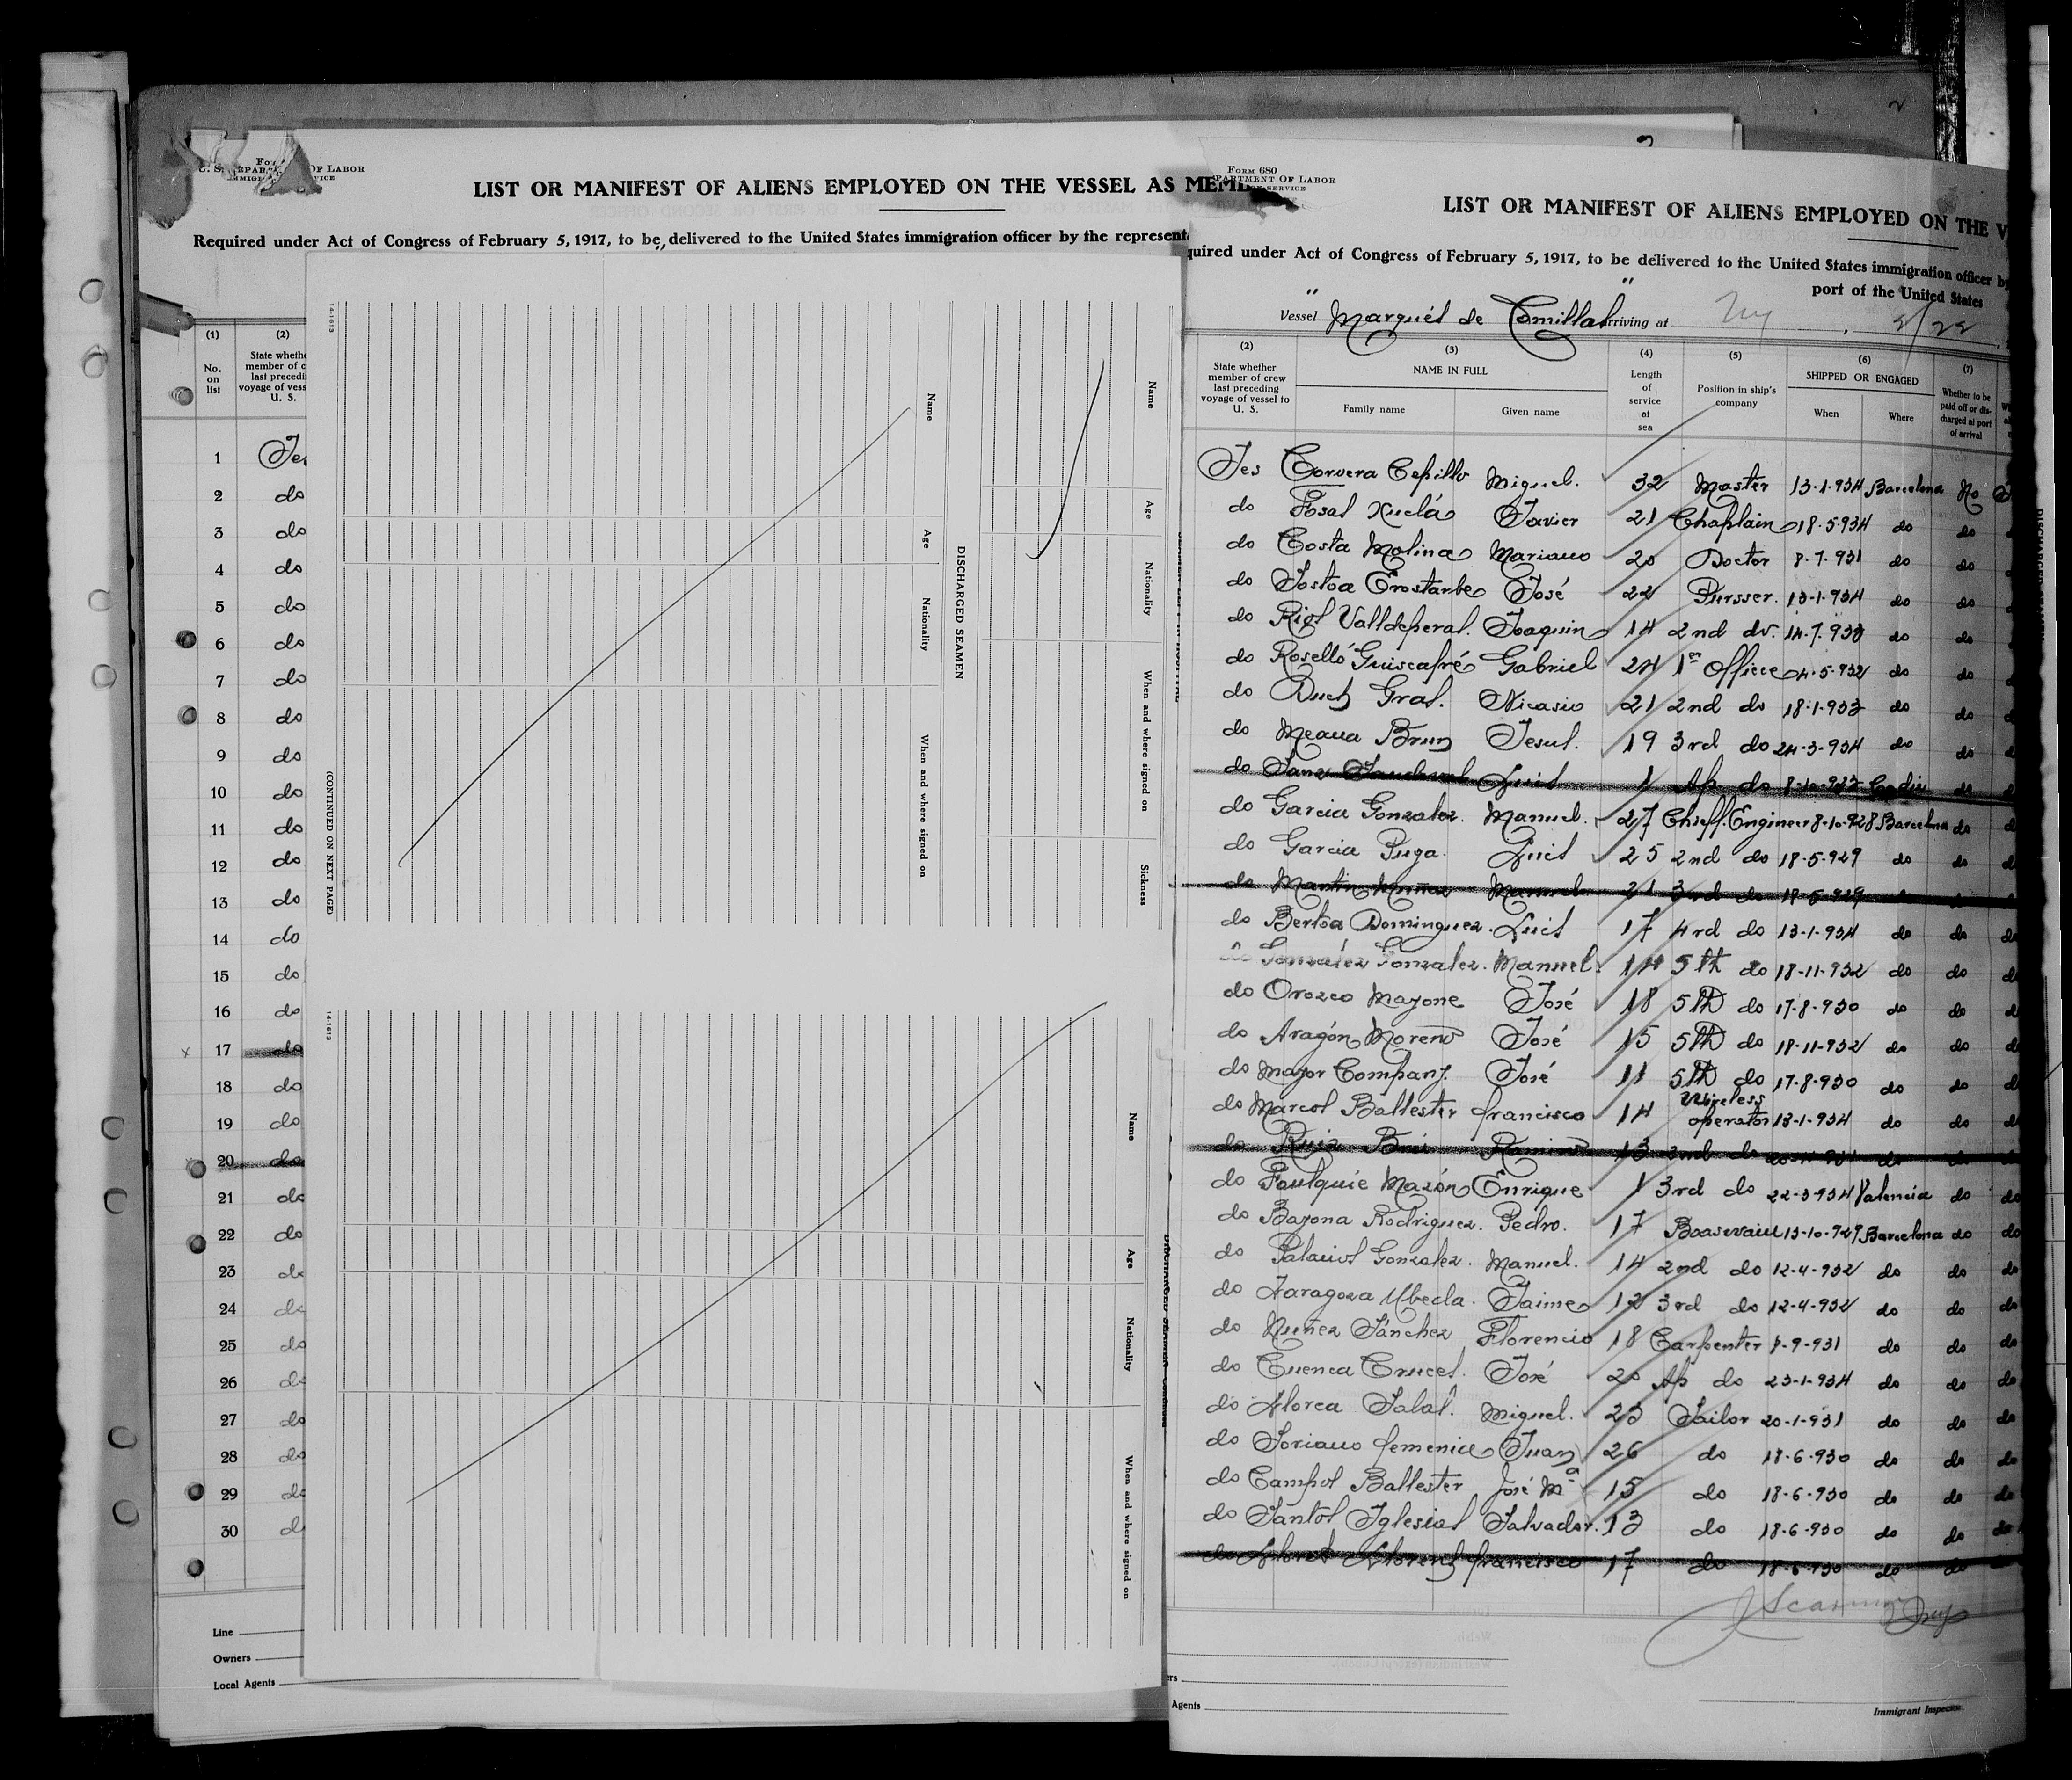 LIST OR MANIFEST OF ALIENS EMPLOYED ON THE VESSEL AS MEMB
Required under Act of Congress of February 5, 1917, to be delivered to the United States immigration officer by the represent
(1) (2)
No. on list
State whethe
member of c
last precedi
voyage of vess
U. S.
1 Yes
2 do
3 do
4 do
5 do
6 do
7 do
8 do
9 do
10 do
11 do
12 do
13 do
14 do
15 do
16 do
x 17 do
18 do
19 do
20 do
21 do
22 do
23 do
24 do
25 do
26 do
27 do
28 do
29 do
30 do
Line
Owners
Local Agents
14-1613
Name Age Nationality When and where signed on Sickness
DISCHARGED SEAMEN
Name Age Nationality When and where signed on
(CONTINUED ON NEXT PAGE)
14-1613
Name Age Nationality When and where signed on
FORM 680
PARTMENT OF LABOR
SERVICE
LIST OR MANIFEST OF ALIENS EMPLOYED ON THE V
quired under Act of Congress of February 5, 1917, to be delivered to the United States immigration officer by
port of the United States
Vessel "Marqués de Comillas" arriving at Ny, 5/22
(2) (3) (4) (5) (6) (7)
State whether member of crew last preceding voyage of vessel to U. S.
NAME IN FULL
Family name Given name
Length of service at sea
Position in ship's company
SHIPPED OR ENGAGED
When Where
Whether to be paid off or discharged at port of arrival
Yes Corvera Cepillo Miguel. 32 Master 13-1-934 Barcelona No
do Fosal Xuclá Javier 21 Chaplain 18-5-934 do do
do Costa Molina Mariano 20 Doctor 8-7-931 do do
do Sostoa Erostarbe José 22 Pursser. 13-1-934 do do
do Riol Valldeperal. Joaquin 14 2nd dr. 14-7-933 do do
do Roselló Guiscafré Gabriel 24 1er Officce 4-5-932 do do
do Duch Gral. Nicasio 21 2nd do 18-1-933 do do
do Meaua Brun Jesus. 19 3rd do 24-3-934 do do
do Sanz Luis 1 Ap do 8-10-933 Cadiz do
do Garcia Gonzalez. Manuel. 27 Chieff. Engineer 8-10-928 Barcelona do
do Garcia Puga. Luis 25 2nd do 18-5-929 do do
do Martin Muñoz Manuel 21 3rd do 18-5-929 do
do Bertoa Dominguez. Luis 17 4rd do 13-1-934 do do
do González Gonzalez. Manuel. 14 5th do 18-11-932 do do
do Orozco Mayone José 18 5th do 17-8-930 do do
do Aragón Moreno José 15 5th do 18-11-932 do do
do Mayor Company. José 11 5th do 17-8-930 do do
do Marcos Ballester francisco 14 Wireless operator 13-1-934 do do
do Ruiz 13 2nd do do do
do Foulquie Mazón Enrique 1 3rd do 22-3-934 Valencia do
do Bayona Rodriguez. Pedro. 17 Boasevain 13-10-929 Barcelona do
do Palacios Gonzalez. Manuel. 14 2nd do 12-4-932 do do
do Zaragoza Ubeda. Jaime 12 3rd do 12-4-932 do do
do Nuñez Sánchez Florencio 18 Carpenter 8-9-931 do do
do Cuenca Cruces. José 20 Ap do 23-1-934 do do
do Llorca Salas. Miguel. 23 Sailor 20-1-931 do do
do Soriano femenia Juan 26 do 18-6-930 do do
do Campos Ballester José Mª 15 do 18-6-930 do do
do Santos Iglesias Salvador. 13 do 18-6-930 do do
do Lloret Llorens francisco 17 do 18-6-930 do do
Agents
Immigrant Inspector.